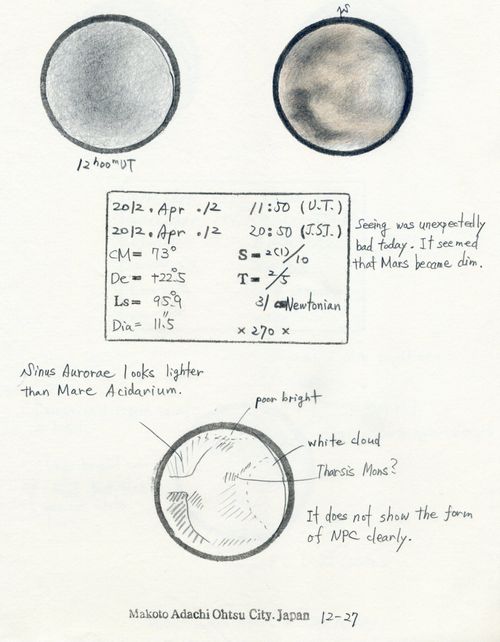 12h00mUT
2012. Apr. 12 11:50 (U.T.)
2012. Apr. 12 20:50 (J.S.T.)
CM= 73° S= 2(1)/10
De= +22.°5 T= 2/5
Ls= 95.°9 31 Newtonian
Dia= 11."5 × 270 ×
Seeing was unexpectedly
bad today. It seemed
that Mars became dim.
Sinus Aurorae looks lighter
than Mare Acidarium.
poor bright
white cloud
Tharsis Mons?
It does not show the form
of NPC clearly.
Makoto Adachi Ohtsu City. Japan 12-27